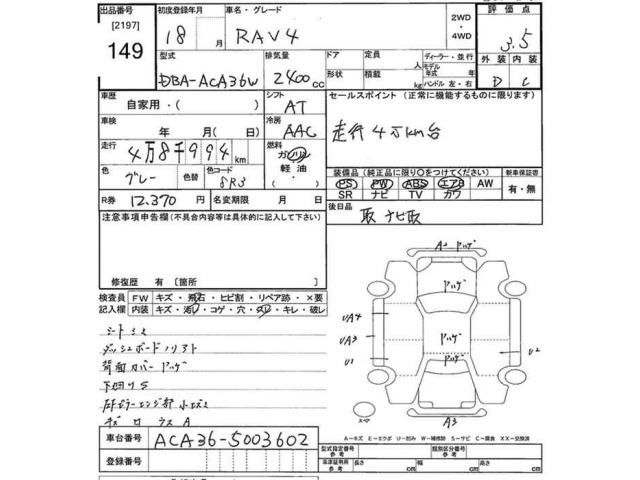 出品番号 初度登録年月 車名・グレード 評価点
[2197] 149 18 月 RAV4 2WD・4WD 3.5
型式 排気量 ドア 定員 ディーラー・並行 外装 内装
DBA-ACA36W 2400 cc 形状 積載 人 kg モデル年式 年 ハンドル 左・右 D C
車歴 シフト セールスポイント (正常に機能するものに限ります)
自家用・( ) AT
車検 冷房
年 月( 日) AAC 走行4万km台
走行 燃料
4万8千994 km ガソリン 軽油・
色 色替 色コード 装備品(純正品に限り〇をつけてください) 新車保証書
グレー 8R3 PS PW ABS エアB AW 有・無
SR ナビ TV カワ
R券 12,370 円 名変期限 年 月 後日品
注意事項申告欄(不具合内容等は具体的に記入して下さい) 取 ナビ取
A2 ハゲ
ハゲ
修復歴 有 [箇所 ]
検査員記入欄 FW キズ・飛石・ヒビ割・リペア跡・×要
内装 キズ・汚レ・コゲ・穴・スリ・キレ・破レ
UA4
シートシミ UA3 ハゲ
ダッシュボード
背面カバー ハゲ U1 U2
下回りS
ハゲ
A3
スペア
車台番号 ACA36-5003602
A－キズ E－エクボ U－凹み W－補修跡 S－サビ C－腐食 XX－交換済
型式指定番号 参考 類別区分番号 参考
登録番号 車庫証明用 参考 長さ cm 幅 cm 高さ cm